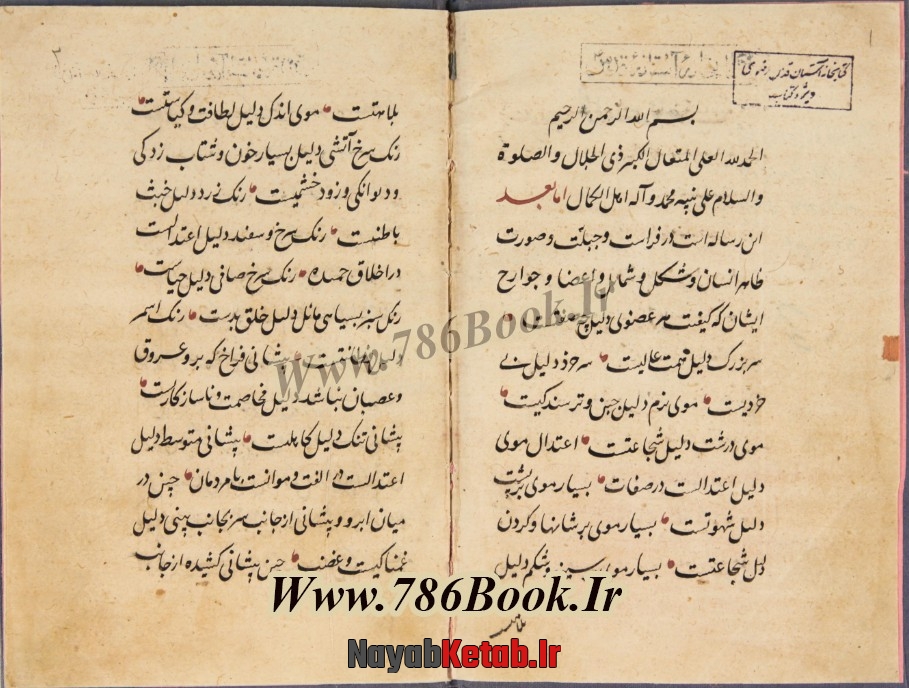 کتابخانه آستان قدس رضوی
ویژه کتاب
بسم الله الرحمن الرحیم
الحمد لله العلی المتعال الکبیر ذی الجلال والصلوة
والسلام علی نبیه محمد وآله اهل الکمال اما بعد
این رساله است در فراست وجبلت وصورت
ظاهر انسان وشکل وشمایل واعضا وجوارح
ایشان که کیفیت هر عضوی دلیل چه
سر بزرک دلیل همت عالیست سر خرد دلیل بی
خردیست موی نرم دلیل جبن وترسندکیست
موی درشت دلیل شجاعتست اعتدال موی
دلیل اعتدالست در صفات بسیار موی بر پشت
دلیل شهوتست بسیار موی بر شانها وکردن
دلیل شجاعتست بسیار موی سینه وشکم دلیل
بلاهتست
بلاهتست موی اندک دلیل لطافت وکیاستست
رنک سرخ آتشی دلیل بسیار خون وشتاب زدکی
ودیوانکی وزود خشمیست رنک زرد دلیل خبث
باطنست رنک سرخ وسفید دلیل اعتدالست
در اخلاق حمیده رنک سرخ صافی دلیل حیاست
رنک سبز بسیاهی مائل دلیل خلق بدست رنک اسمر
دلیل پیشانی فراخ که برو عروق
وعصبان نباشد دلیل مخاصمت وناسازکاریست
پیشانی تنک دلیل کاهلیست پیشانی متوسط دلیل
اعتدالست در الفت وموانست با مردمان چین در
میان ابرو وپیشانی از جانب سر بجانب بینی دلیل
غمناکیست وغضب چین پیشانی کشیده از جانب
Www.786Book.Ir
Www.786Book.Ir
NayabKetab.Ir